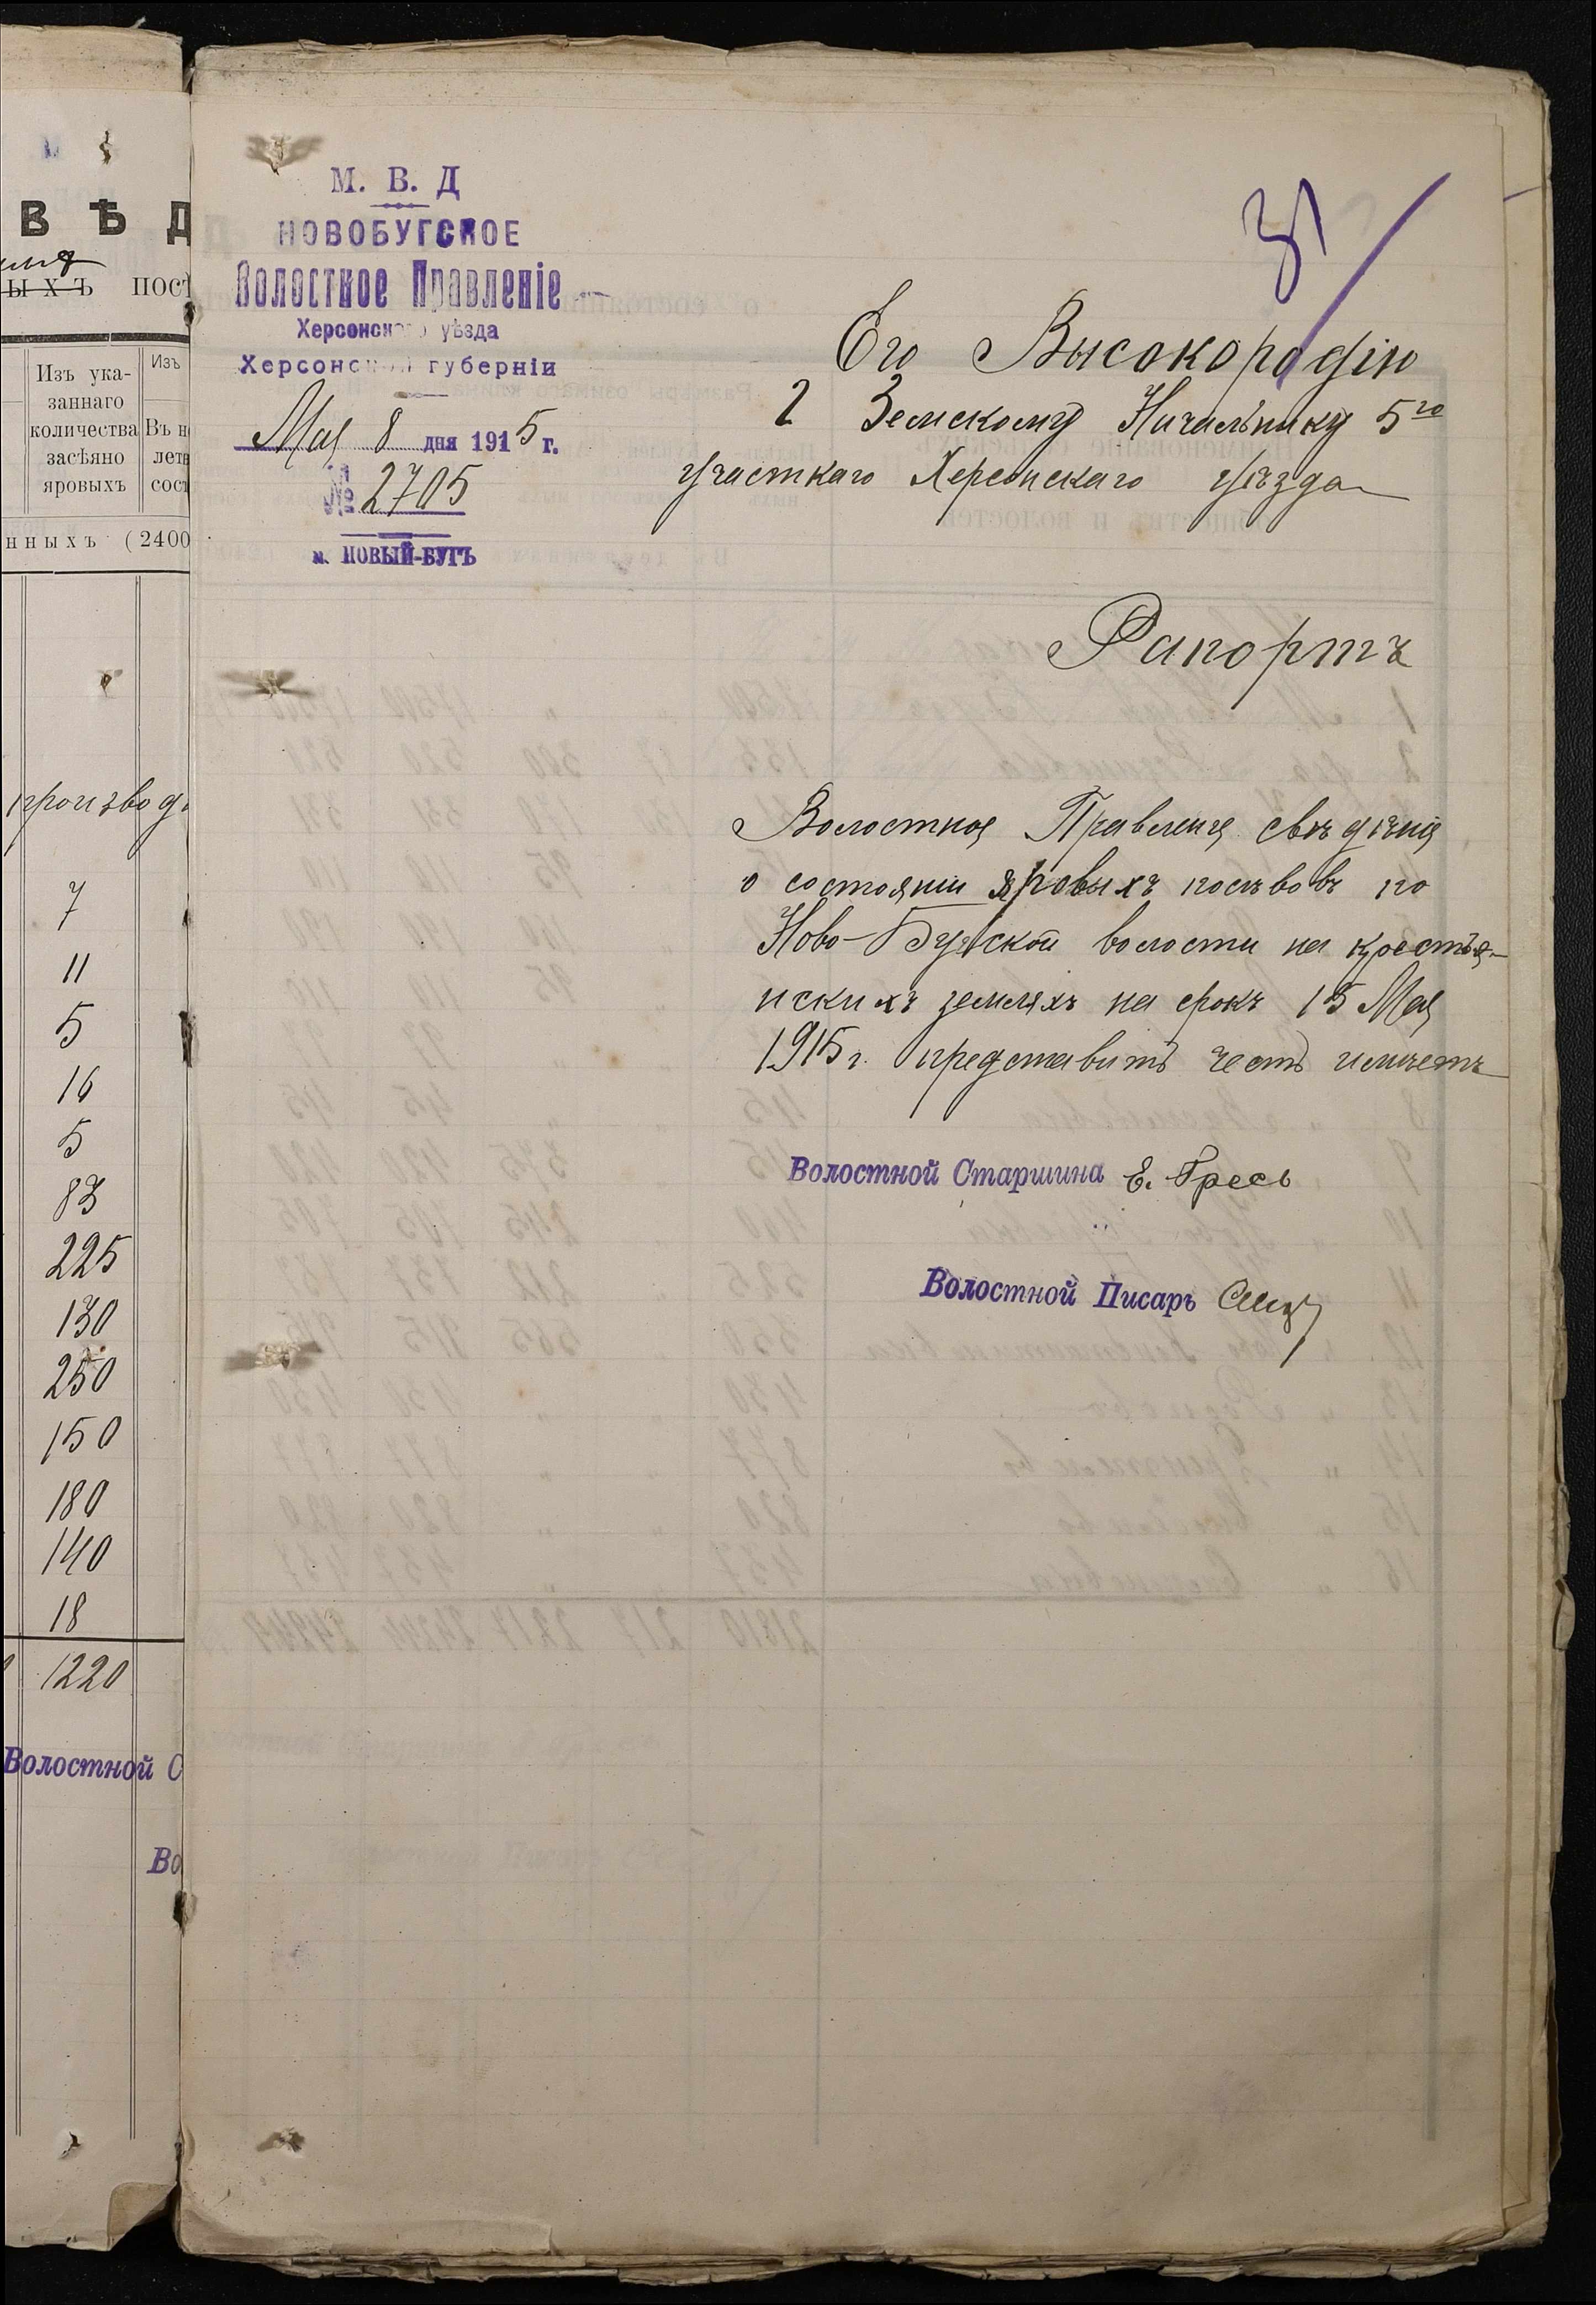 В Ѣ Д
ыхъ посѣ
Изъ ука-
заннаго
количества
засѣяно
яровыхъ
Изъ
Въ н
лет
сост
нныхъ (2400
производ
7
11
5
16
5
83
225
130
250
150
180
140
18
1220
Волостной С
Во
М. В. Д
НОВОБУГСКОЕ
Волостное Правленіе
Херсонскаго уѣзда
Херсонской губерніи
Мая 8 дня 1915 г.
№ 2705
м. НОВЫЙ-БУГЪ
31
Его Высокородію
Г Земскому Начальнику 5го
участкаго Херсонскаго уѣзда
Рапортъ
Волостное Правленіе свѣдѣнія
о состояніи яровыхъ посѣвовъ по
Ново-Бугской волости на крестья-
нскихъ земляхъ на срокъ 15 Мая
1915 г. представить честь имѣетъ
Волостной Старшина Е. Гресь
Волостной Писарь